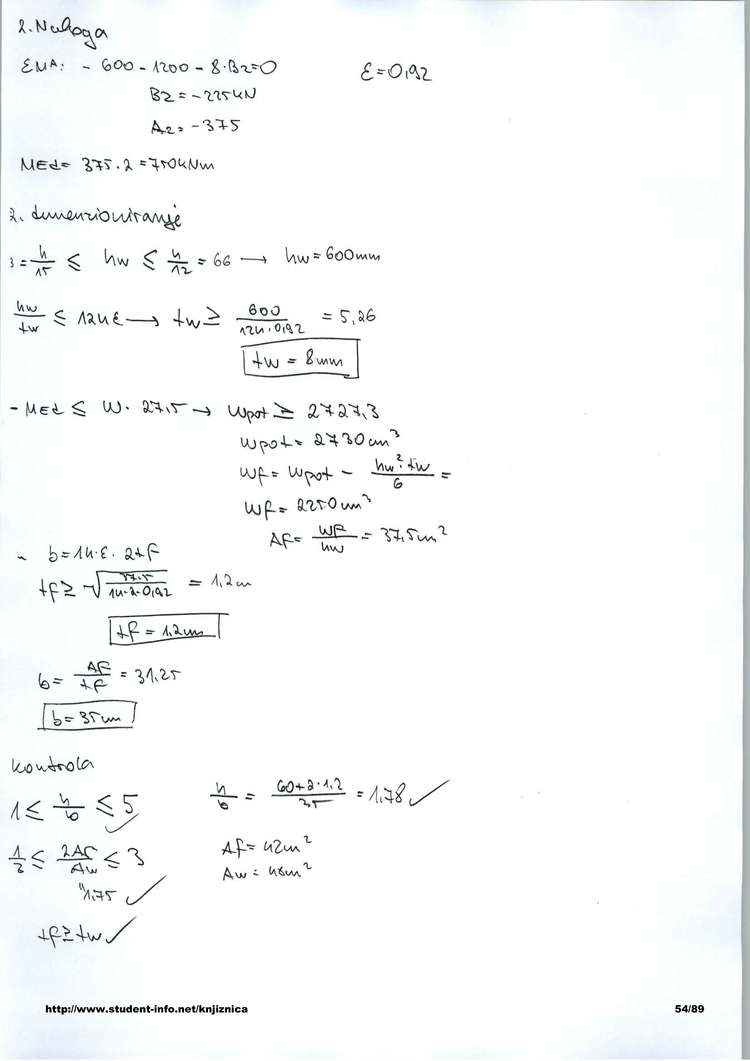 2. Naloga
ΣMA: - 600 - 1200 - 8·Bz = 0 ε = 0,92
Bz = -225 kN
Az = -375
MEd = 375·2 = 750 kNm
2. dimenzioniranje
3 = h/15 ≤ hw ≤ h/12 = 66 → hw = 600 mm
hw/tw ≤ 124ε → tw ≥ 600/124·0,92 = 5,26
tw = 8 mm
- MEd ≤ W · 27,5 → Wpot ≥ 2727,3
Wpot = 2730 cm³
Wf = Wpot - hw²·tw/6 =
Wf = 2250 cm³
Af = Wf/hw = 37,5 cm²
- b = 14·ε·2tf
tf ≥ √37,5/14·2·0,92 = 1,2 cm
tf = 1,2 cm
b = Af/tf = 31,25
b = 35 cm
kontrola
1 ≤ h/b ≤ 5 ✓ h/b = 60+2·1,2/35 = 1,78 ✓
1/3 ≤ 2Af/Aw ≤ 3 Af = 42 cm²
"1,75 ✓ Aw = 48 cm²
tf ≥ tw ✓
http://www.student-info.net/knjiznica 54/89